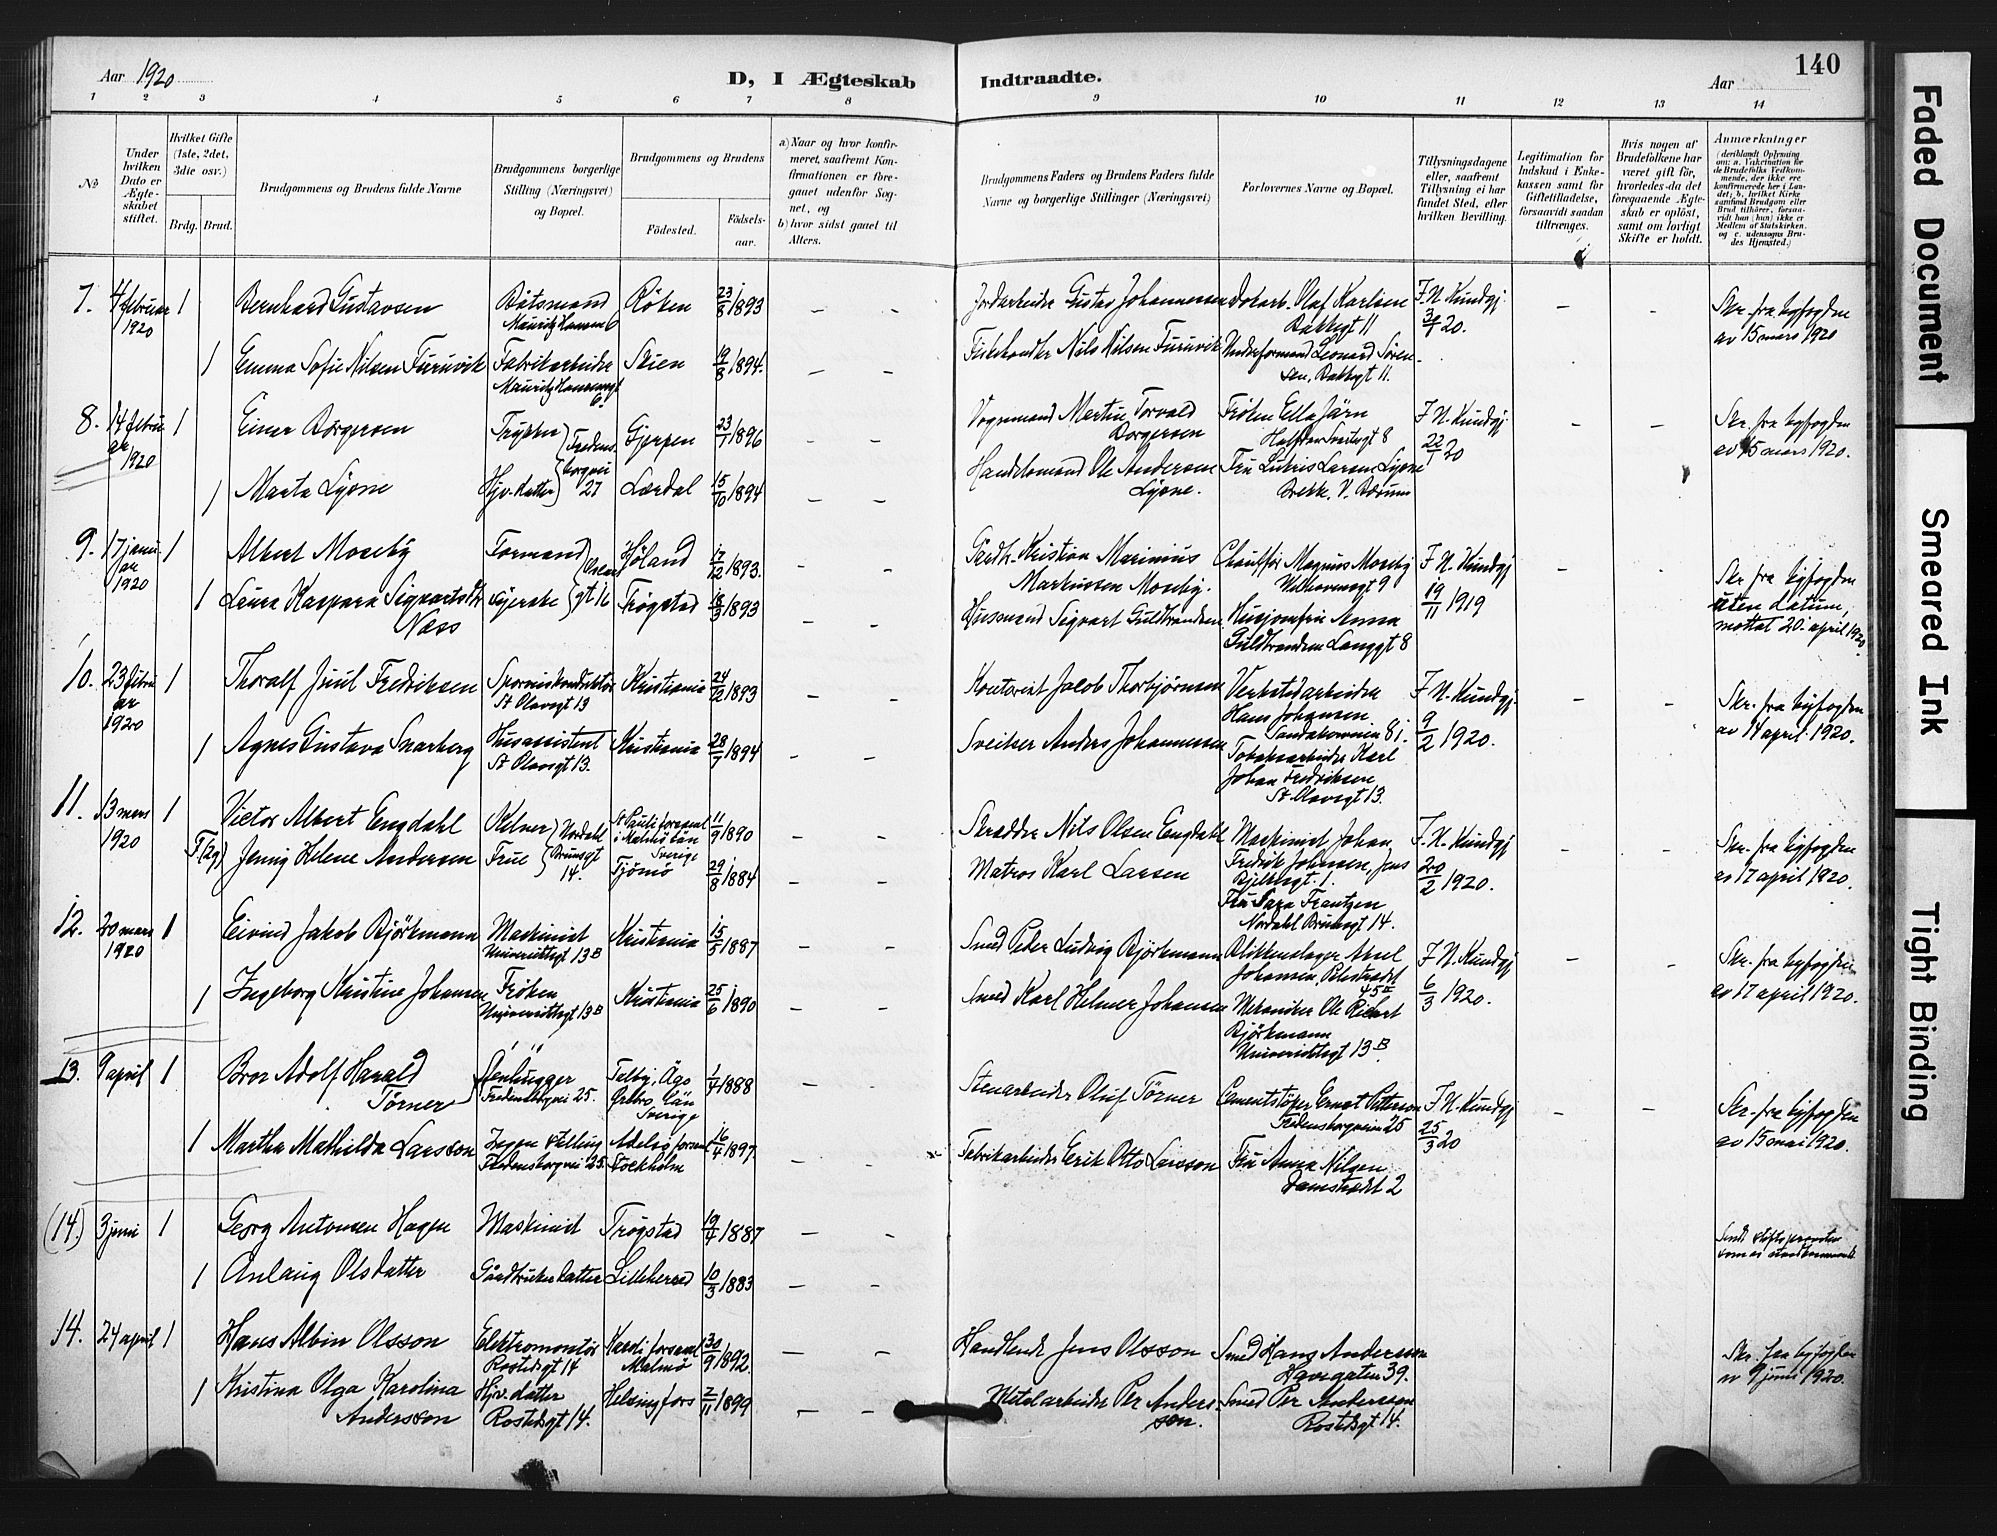 Aar 1920
D, I Ægteskab
Indtraadte.
Aar
140
1 2 3 4 5 6 7 8 9 10 11 12 13 14
No
Under hvilken Dato er Ægteskabet stiftet.
Hvilket Gifte (1ste, 2det, 3die osv.)
Brdg. Brud.
Brudgommens og Brudens fulde Navne
Brudgommens borgerlige Stilling (Næringsvei) og Bopæl.
Brudgommens og Brudens
Fødested.
Fødsels-aar.
a) Naar og hvor konfirmeret, saafremt Konfirmationen er foregaaet udenfor Sognet, og
b) hvor sidst gaaet til Alters.
Brudgommens Faders og Brudens Faders fulde Navne og borgerlige Stillinger (Næringsvei)
Forlovernes Navne og Bopæl.
Tillysningsdagene eller, saafremt Tillysning ei har fundet Sted, efter hvilken Bevilling.
Legitimation for Indskud i Enkekassen samt for Giftetilladelse, forsaavidt saadan tiltrænges.
Hvis nogen af Brudefolkene har været gift før, hvorledes da det foregaaende Ægteskab er opløst, samt om lovligt Skifte er holdt.
Anmærkninger
7. 4 februar 1920 1 Bernhard Gustavsen Båtsmand Mauritz Hansensgt 6 Röken 23/8 1893 Jordarbeider Gustav Johannessen Dokarb. Olaf Karlsen Bakkegt 11 F. N. Kundgj. 20. Skr. fra byfogden av 15 mars 1920
1 Emma Sofie Nilsen Furuvik Fabrikarbeider Mauritz Hansensgt 6. Skien 19/8 1894. Fiskehandler Nils Nilsen Furuvik Underformand Leonard Sörensen, Bakkegt 11.
8. 14 februar 1920 1 Einar Borgersen Trykker Fredensborgvei 27 Gjerpen 23/1 1896 Vognmand Martin Torvald Borgersen Fröken Ella Järn F. N. Kundgj. 22/1 20 Skr. fra byfogden av 15 mars 1920.
1 Marta Lysne Hjv. datter Lærdal 15/10 1894 Handelsmand Ole Andersen Lysne. Fru Larsen Lysne Brekke. V. Bærum
9. 17 januar 1920 1 Albert Moseby Formand Oscarsgt 16 Höland 17/12 1893. Gårdbr. Kristian Marinius Markussen Moseby. Chauffør Magnus Moseby Welhavensgt 9 F. N. Kundgj. 19/11 1919 Skr. fra byfogden uten datum, mottat 20. april 1920
1 Laura Kaspara Sigvartsdtr Næss syerske Trøgstad 18/3 1893 Husmand Sigvart Guldbrandsen Husjomfru Anna Guldbrandsen Langgt 8
10. 23 februar 1920 1 Thoralf Juul Fredriksen Sporveiskonduktør St Olavsgt 13 Kristiania 24/12 1893 Kontorist Jacob Thorbjørnsen Verkstedarbeider Hans Johansen Sandakerveien 8 F. N. Kundgj. 9/2 1920. Skr. fra byfogden av 14 april 1920.
1 Agnes Gustava Snarberg Husassistent St Olavsgt 13. Kristiania 28/7 1894 Sveitser Anders Johannessen Tobaksarbeider Karl Johan Fredriksen St. Olavsgt 13.
11. 13 mars 1920 1 Victor Albert Engdahl Kelner Nordahl Brunsgt 14. St Pauli forsaml. i Malmö Län Sverige 11/9 1890 Skrædder Nils Olsen Engdahl Maskinist Johan Fredrik Johansen, Jens Bjelkesgt. 1. F. N. Kundgj. 20/2 1920. Skr. fra byfogden av 17 april 1920.
Jenny Helene Andersen Frue Tjömö 29/8 1884 Matros Karl Larsen Fru Sara Frantzen Nordahl Brunsgt 14.
12. 20 mars 1920 1 Eivind Jakob Björkmann Maskinist Universitetsgt 13 B Kristiania 15/5 1887 Smed Peder Ludvig Björkmann Blikkenslager Axel Johansen, Pilestrædet 45 II F. N. Kundgj. 6/3 1920. Skr. fra byfogden av 17 april 1920.
1 Ingeborg Kristine Johansen Fröken Universitetsgt 13 B Kristiania 25/6 1890 Smed Karl Helmer Johansen Mekaniker Ole Rikart Björkmann Universitetsgt 13 B.
13. 9 april 1 Bror Adolf Harald Törner Stenhugger Fredensborgvei 25. Örebro Län Sverige 1/4 1888 Stenarbeider Oluf Törner Cementstøper Ernst Petterson Fredensborgveien 25 F. N. Kundgj. 25/3 20 Skr. fra byfogden av 15 mai 1920.
1 Martha Mathilda Larsson Ingen stilling Fredensborgvei 25. Adelsö forsaml Stockholm 16/4 1897 Fabrikarbeider Erik Otto Larsson Fru Anna Nilsen Damstrædet 2
(14.) 3 juni 1 Georg Antonsen Hagen Maskinist Trøgstad 19/4 1887 Sendt stiftsprovsten
1 Anlaug Olsdatter Gårdbrukerdatter Lilleherred 10/3 1883
14. 24 april 1 Hans Albin Olsson Elektromontör Rostedsgt 14 Karoli forsaml Malmö 30/9 1892. Handlende Jens Olsson Smed Hans Andersson Havegaten 39. Skr. fra byfogden av 9 juni 1920.
1 Kristina Olga Karolina Andersson Hjv. datter Rostedsgt 14. Helsingfors 2/11 1899 Metalarbeider Per Andersson. Smed Per Andersson Rostedsgt 14.
Faded Document
Smeared Ink
Tight Binding